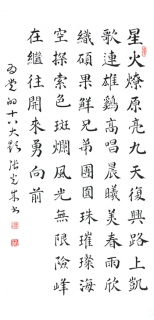 星火燎原亮九天復興路上凱
歌連雄鷄高唱晨曦美春雨欣
織碩果鮮兄弟團圓珠璀璨海
空探索色斑斕風光無限險峰
在繼往開來勇向前
为党的十八大